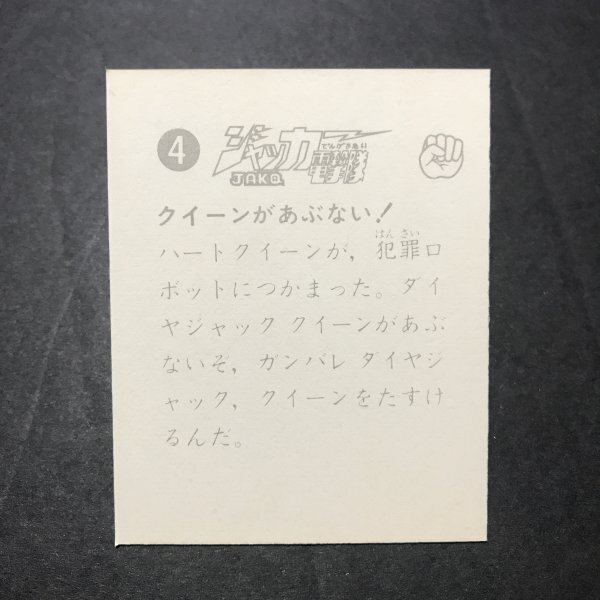 4
ジャッカー
でんげきたい
電撃隊
JAKQ
クイーンがあぶない!
はんざい
ハートクイーンが,犯罪ロ
ボットにつかまった。ダイ
ヤジャック クイーンがあぶ
ないぞ,ガンバレ ダイヤジ
ャック,クイーンをたすけ
るんだ。